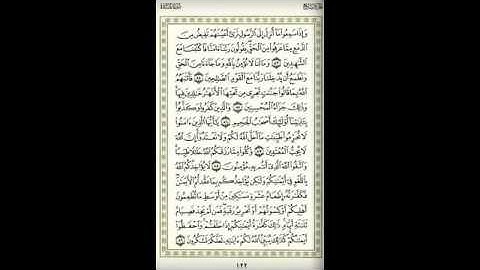 وَإِذَا سَمِعُوا مَا أُنزِلَ إِلَى الرَّسُولِ تَرَىٰ أَعْيُنَهُمْ تَفِيضُ مِنَ
الدَّمْعِ مِمَّا عَرَفُوا مِنَ الْحَقِّ يَقُولُونَ رَبَّنَا آمَنَّا فَاكْتُبْنَا مَعَ
الشَّاهِدِينَ ٨٣ وَمَا لَنَا لَا نُؤْمِنُ بِاللَّهِ وَمَا جَاءَنَا مِنَ الْحَقِّ
وَنَطْمَعُ أَن يُدْخِلَنَا رَبُّنَا مَعَ الْقَوْمِ الصَّالِحِينَ ٨٤ فَأَثَابَهُمُ
اللَّهُ بِمَا قَالُوا جَنَّاتٍ تَجْرِي مِن تَحْتِهَا الْأَنْهَارُ خَالِدِينَ فِيهَا
وَذَٰلِكَ جَزَاءُ الْمُحْسِنِينَ ٨٥ وَالَّذِينَ كَفَرُوا وَكَذَّبُوا
بِآيَاتِنَا أُولَٰئِكَ أَصْحَابُ الْجَحِيمِ ٨٦ يَا أَيُّهَا الَّذِينَ آمَنُوا
لَا تُحَرِّمُوا طَيِّبَاتِ مَا أَحَلَّ اللَّهُ لَكُمْ وَلَا تَعْتَدُوا إِنَّ اللَّهَ
لَا يُحِبُّ الْمُعْتَدِينَ ٨٧ وَكُلُوا مِمَّا رَزَقَكُمُ اللَّهُ حَلَالًا طَيِّبًا
وَاتَّقُوا اللَّهَ الَّذِي أَنتُم بِهِ مُؤْمِنُونَ ٨٨ لَا يُؤَاخِذُكُمُ اللَّهُ
بِاللَّغْوِ فِي أَيْمَانِكُمْ وَلَٰكِن يُؤَاخِذُكُم بِمَا عَقَّدتُّمُ الْأَيْمَانَ
فَكَفَّارَتُهُ إِطْعَامُ عَشَرَةِ مَسَاكِينَ مِنْ أَوْسَطِ مَا تُطْعِمُونَ
أَهْلِيكُمْ أَوْ كِسْوَتُهُمْ أَوْ تَحْرِيرُ رَقَبَةٍ فَمَن لَّمْ يَجِدْ فَصِيَامُ
ثَلَاثَةِ أَيَّامٍ ذَٰلِكَ كَفَّارَةُ أَيْمَانِكُمْ إِذَا حَلَفْتُمْ وَاحْفَظُوا
أَيْمَانَكُمْ كَذَٰلِكَ يُبَيِّنُ اللَّهُ لَكُمْ آيَاتِهِ لَعَلَّكُمْ تَشْكُرُونَ ٨٩
١٢٢